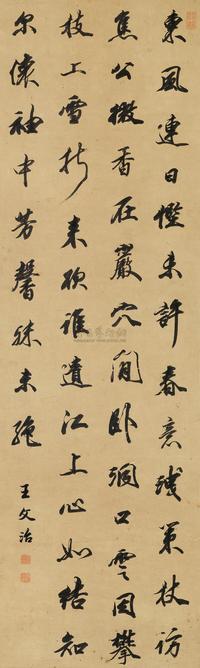 東風連日慳未許春意策杖訪
焦公掇香在巖穴閒卧洞口雲因攀
枝上雪折來欲誰遺江上心如結知
尔懷袖中芳馨殊未絕
王文治